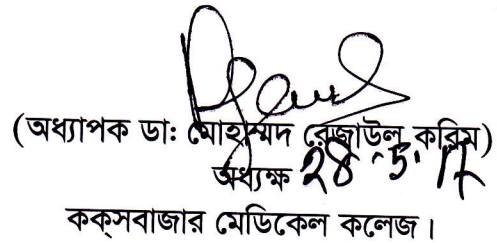 (অধ্যাপক ডা: মোহাম্মদ রেজাউল করিম)
অধ্যক্ষ 28.5.17
কক্সবাজার মেডিকেল কলেজ।